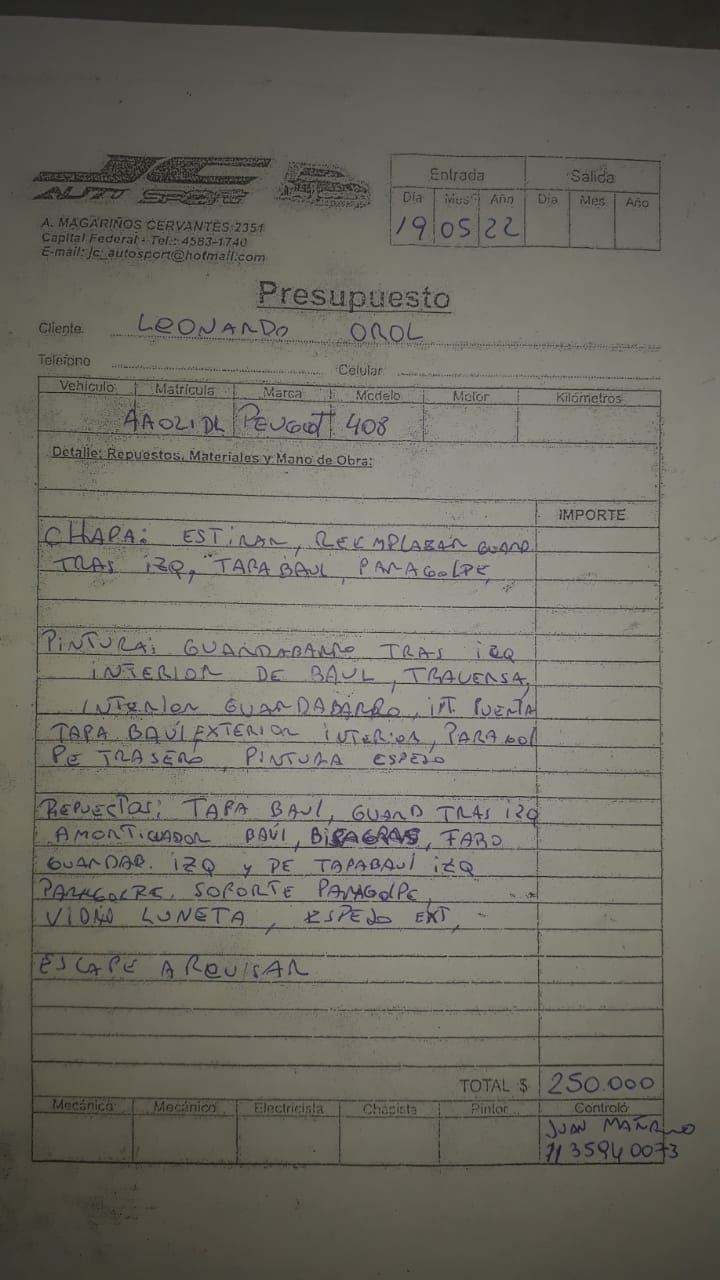 JC
AUTO SPORT
A. MAGARIÑOS CERVANTES 2351
Capital Federal - Tel.: 4583-1740
E-mail: jc_autosport@hotmail.com
Entrada Salida
Dia Mes Año Dia Mes Año
19 05 22
Presupuesto
Cliente LEONARDO OROL
Teléfono Celular
Vehículo Matrícula Marca Modelo Motor Kilómetros
AA021DL PEUGEOT 408
Detalle: Repuestos, Materiales y Mano de Obra:
IMPORTE
CHAPA: ESTIRAR, REEMPLAZAR GUARD
TRAS IZQ, TAPA BAUL, PARAGOLPE,
PINTURA: GUARDABARRO TRAS IZQ
INTERIOR DE BAUL, TRAVERSA,
INTERIOR GUARDABARRO, INT. PUERTA
TAPA BAÚL EXTERIOR INTERIOR, PARAGOL
PE TRASERO, PINTURA ESPEJO
REPUESTOS: TAPA BAUL, GUARD TRAS IZQ
AMORTIGUADOR BAÚL, BISAGRAS, FARO
GUARDAB. IZQ Y DE TAPABAUL IZQ
PARAGOLPE, SOPORTE PARAGOLPE,
VIDRIO LUNETA, ESPEJO EXT,
ESCAPE A REVISAR
TOTAL $ 250.000
Mecánico Mecánico Electricista Chapista Pintor Controló
JUAN
1135940073